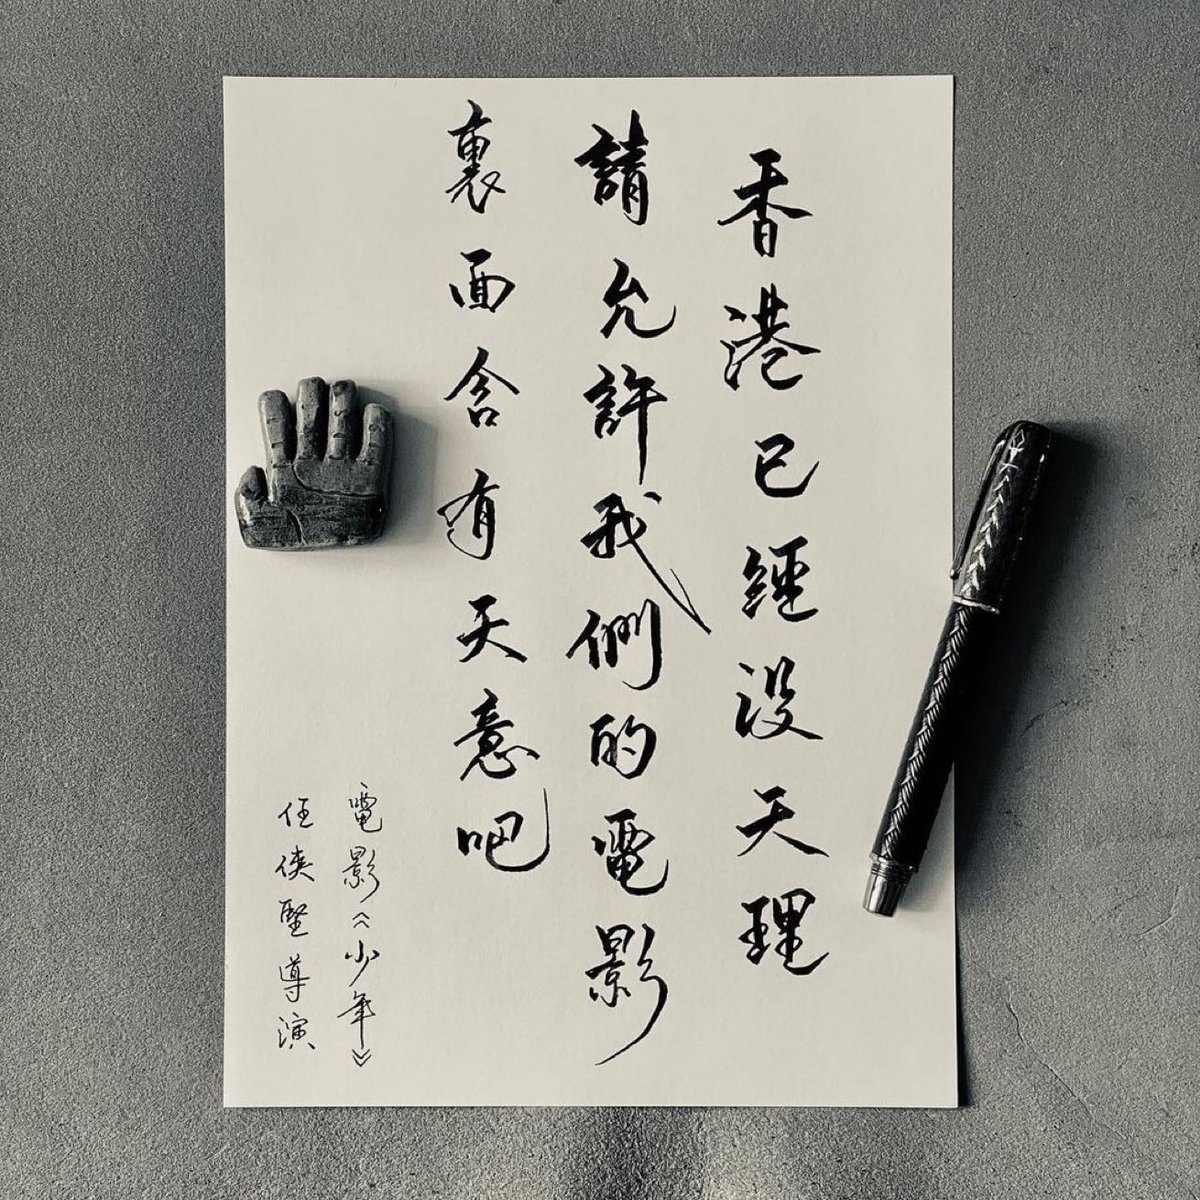 香港已經没天理
請允許我們的電影
裏面含有天意吧
電影《少年》
任俠堅導演